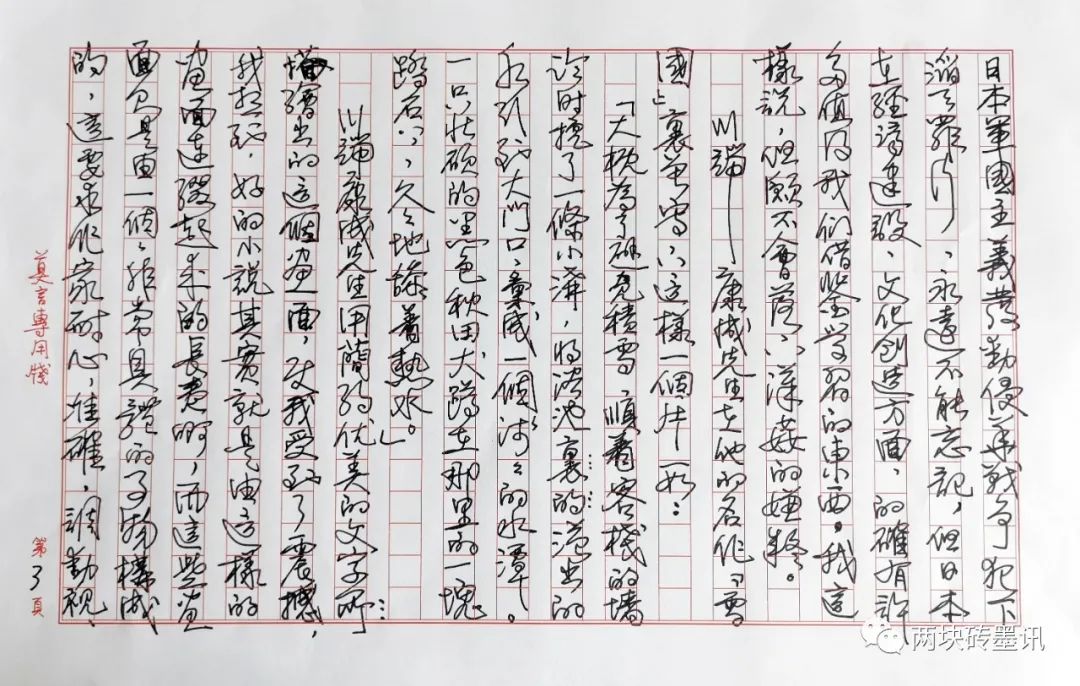 日本軍國主義發動侵華戰爭犯下
滔天罪行,永遠不能忘記,但日本
在經濟建設、文化創造方面,的確有許
多值得我们借鉴学習的東西。我這
樣說,但願不會落下漢奸的嫌疑。
川端康成先生在他的名作『雪
國』裏曾寫下這樣一個片段:
「大概為了避免積雪,順着客栈的墙
临時挖了一條小溝,将浴池裏的溢出的
水引到大門口,彙成一個浅浅的水潭。
一只壮硕的黑色秋田犬蹲在那里的一塊
踏石上,久久地舔着熱水。」
川端康成先生用簡约优美的文字所
描繪出的這個画面,使我受到了震撼,
我想到,好的小說其實就是由這樣的
画面連缀起来的長卷啊,而這些画
面又是由一個個非常具體的事物構成
的,這要求作家耐心,准確,調動視、
莫言專用牋
第3頁
两块砖墨讯